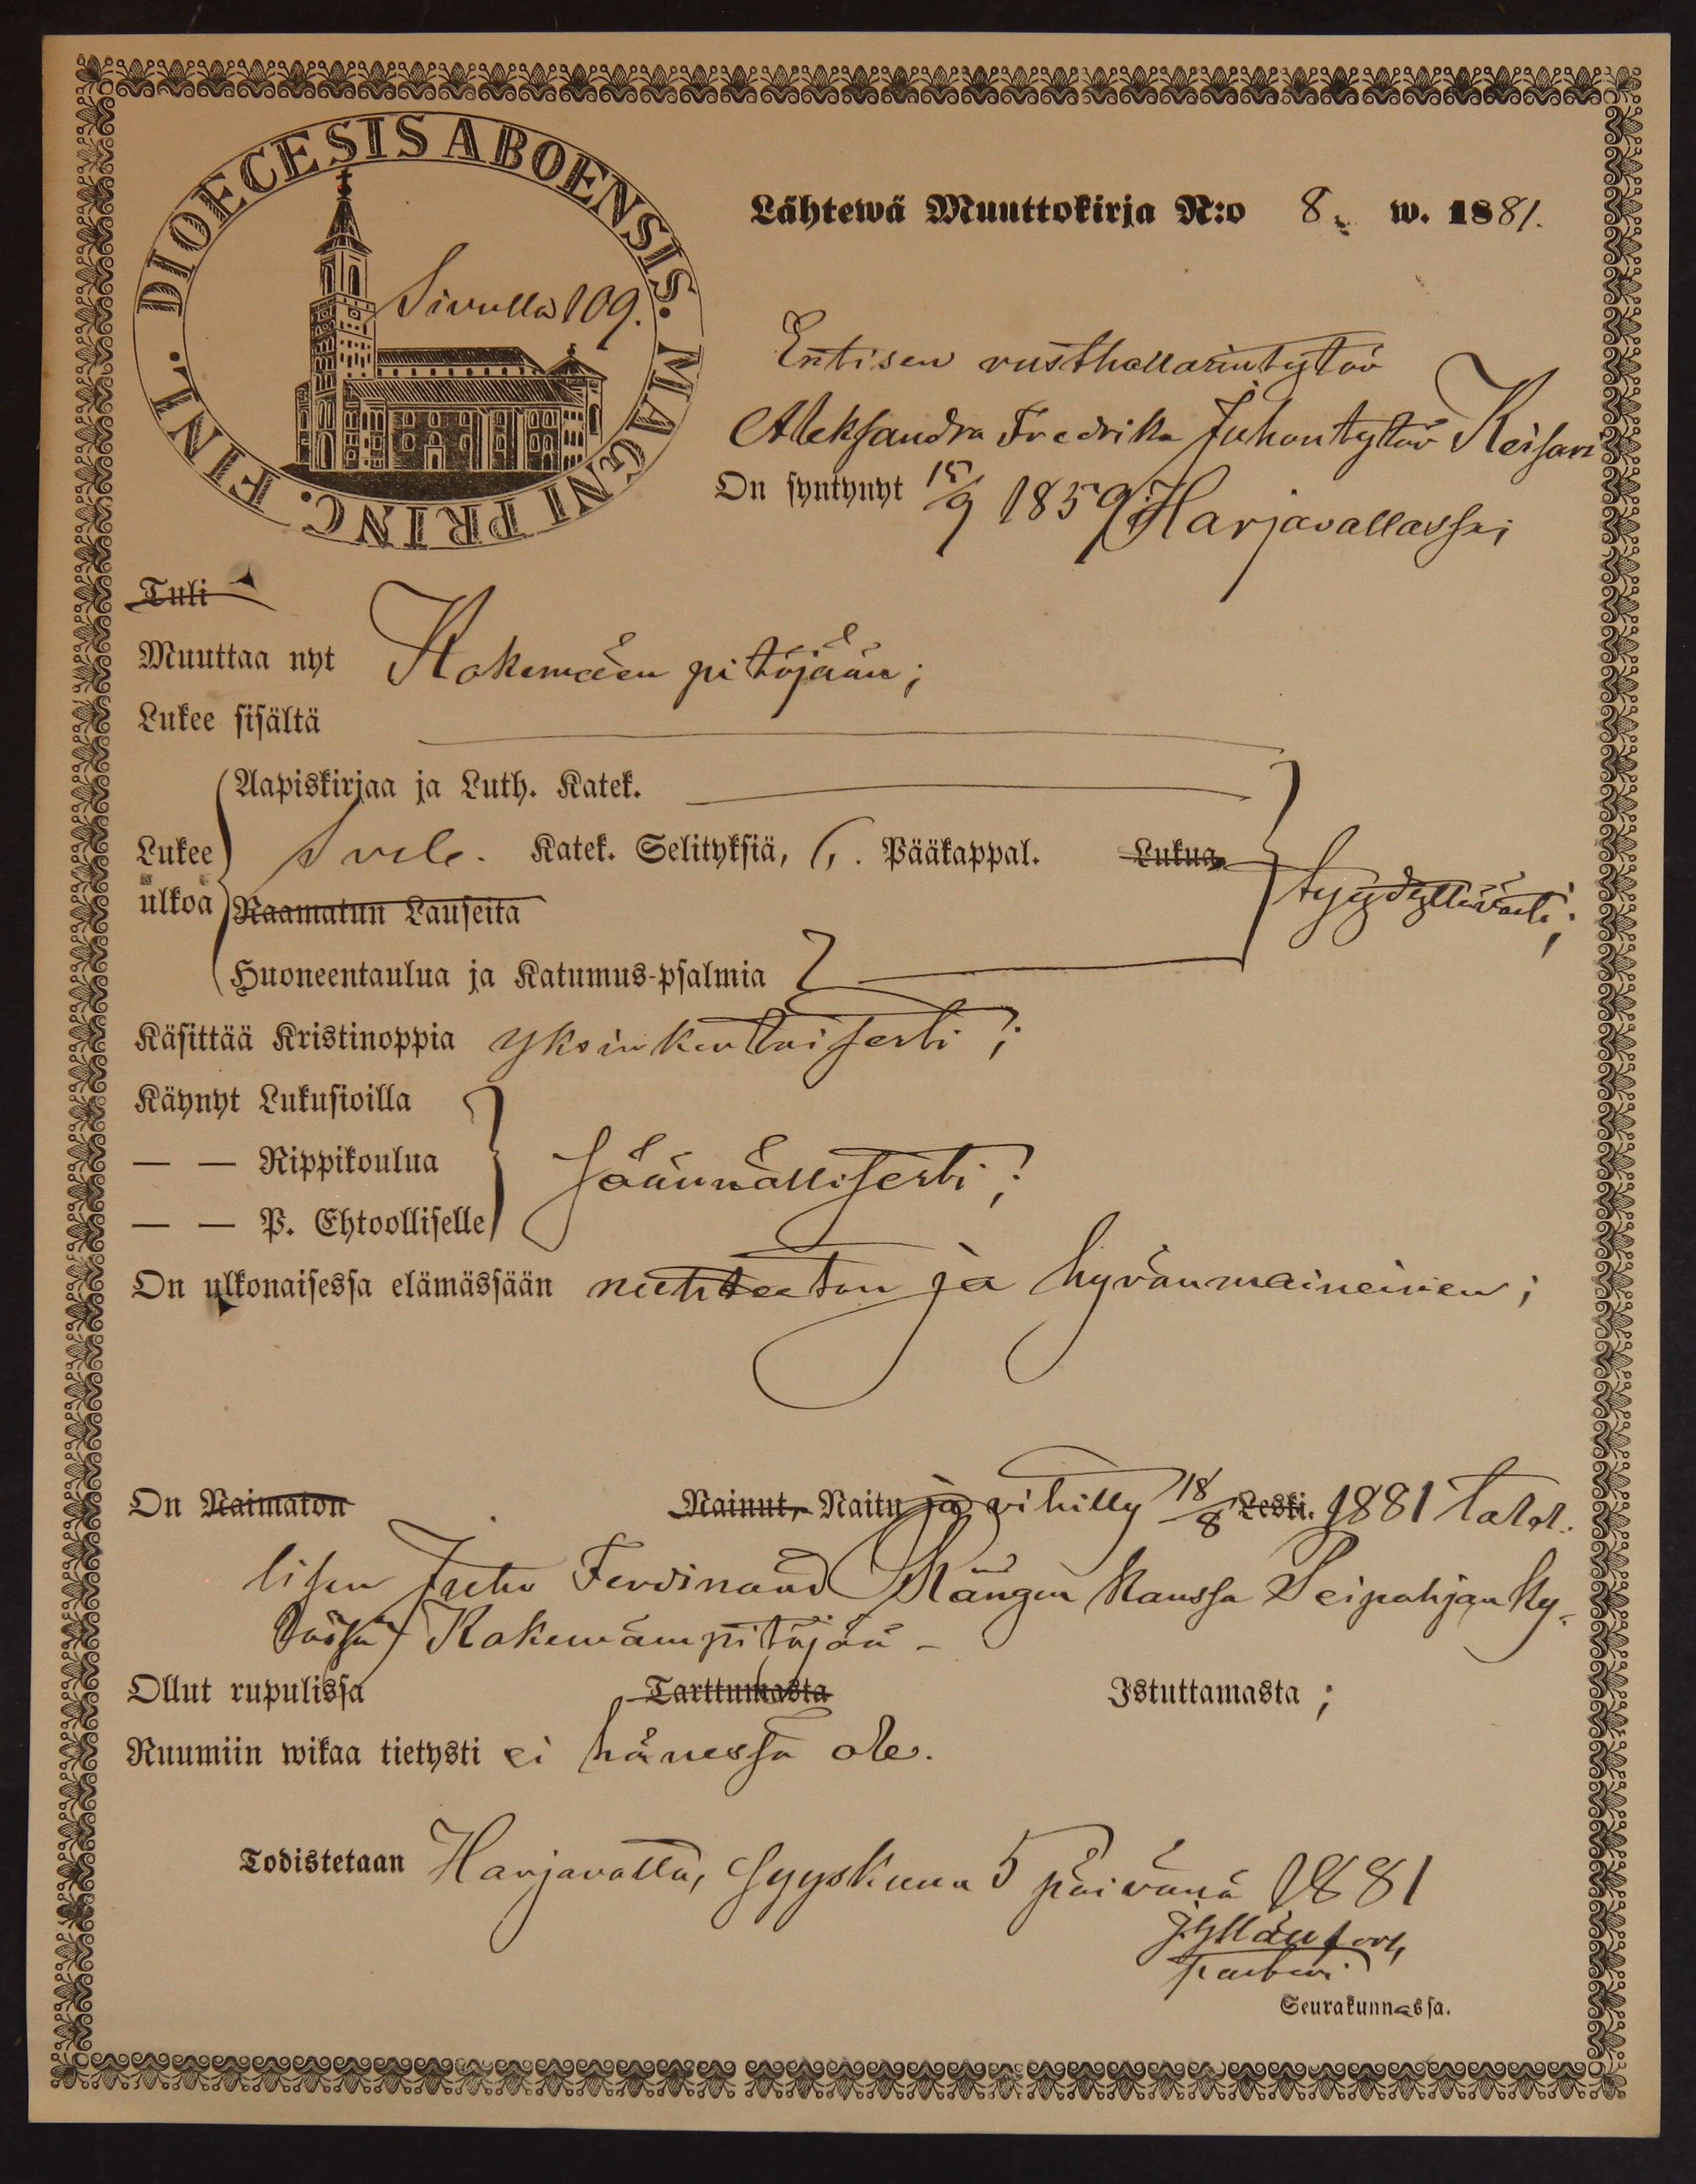 DIOECESIS ABOENSIS. MAGNI PRINC. FINL.
Sivulla 109.
Lähtewä Muuttokirja N:o 8. w. 1881.
Entisen rusthollarintytöö
Aleksandra Fredrika Juhontytöö Keisari
On syntynyt 15/9 1859 Harjavallassa;
Tuli
Muuttaa nyt Kokemäen pitöjään;
Lukee sisältä
Aapiskirjaa ja Luth. Katek.
Lukee Svel. Katek. Selityksiä, 6. Pääkappal. Lukua
tyydyttävästi;
ulkoa Raamatun Lauseita
Huoneentaulua ja Katumus-psalmia
Käsittää Kristinoppia yksinkertaisesti;
Käynyt Lukusioilla
— — Rippikoulua säännöllisesti;
— — P. Ehtoolliselle
On ulkonaisessa elämässään nuhteeton ja hyvänmaineinen;
On Naimaton Nainut, Naitu ja vihitty 18/8 Leski. 1881 talol.
lisen Juho Ferdinand Mängin kanssa Peipohjan ky-
lässä Kokemäen pitöjää -
Ollut rupulissa Tarttumasta Istuttamasta ;
Ruumiin wikaa tietysti ei hänessä ole.
Todistetaan Harjavalta, Syyskuun 5 päivänä 1881
Seurakunnassa.